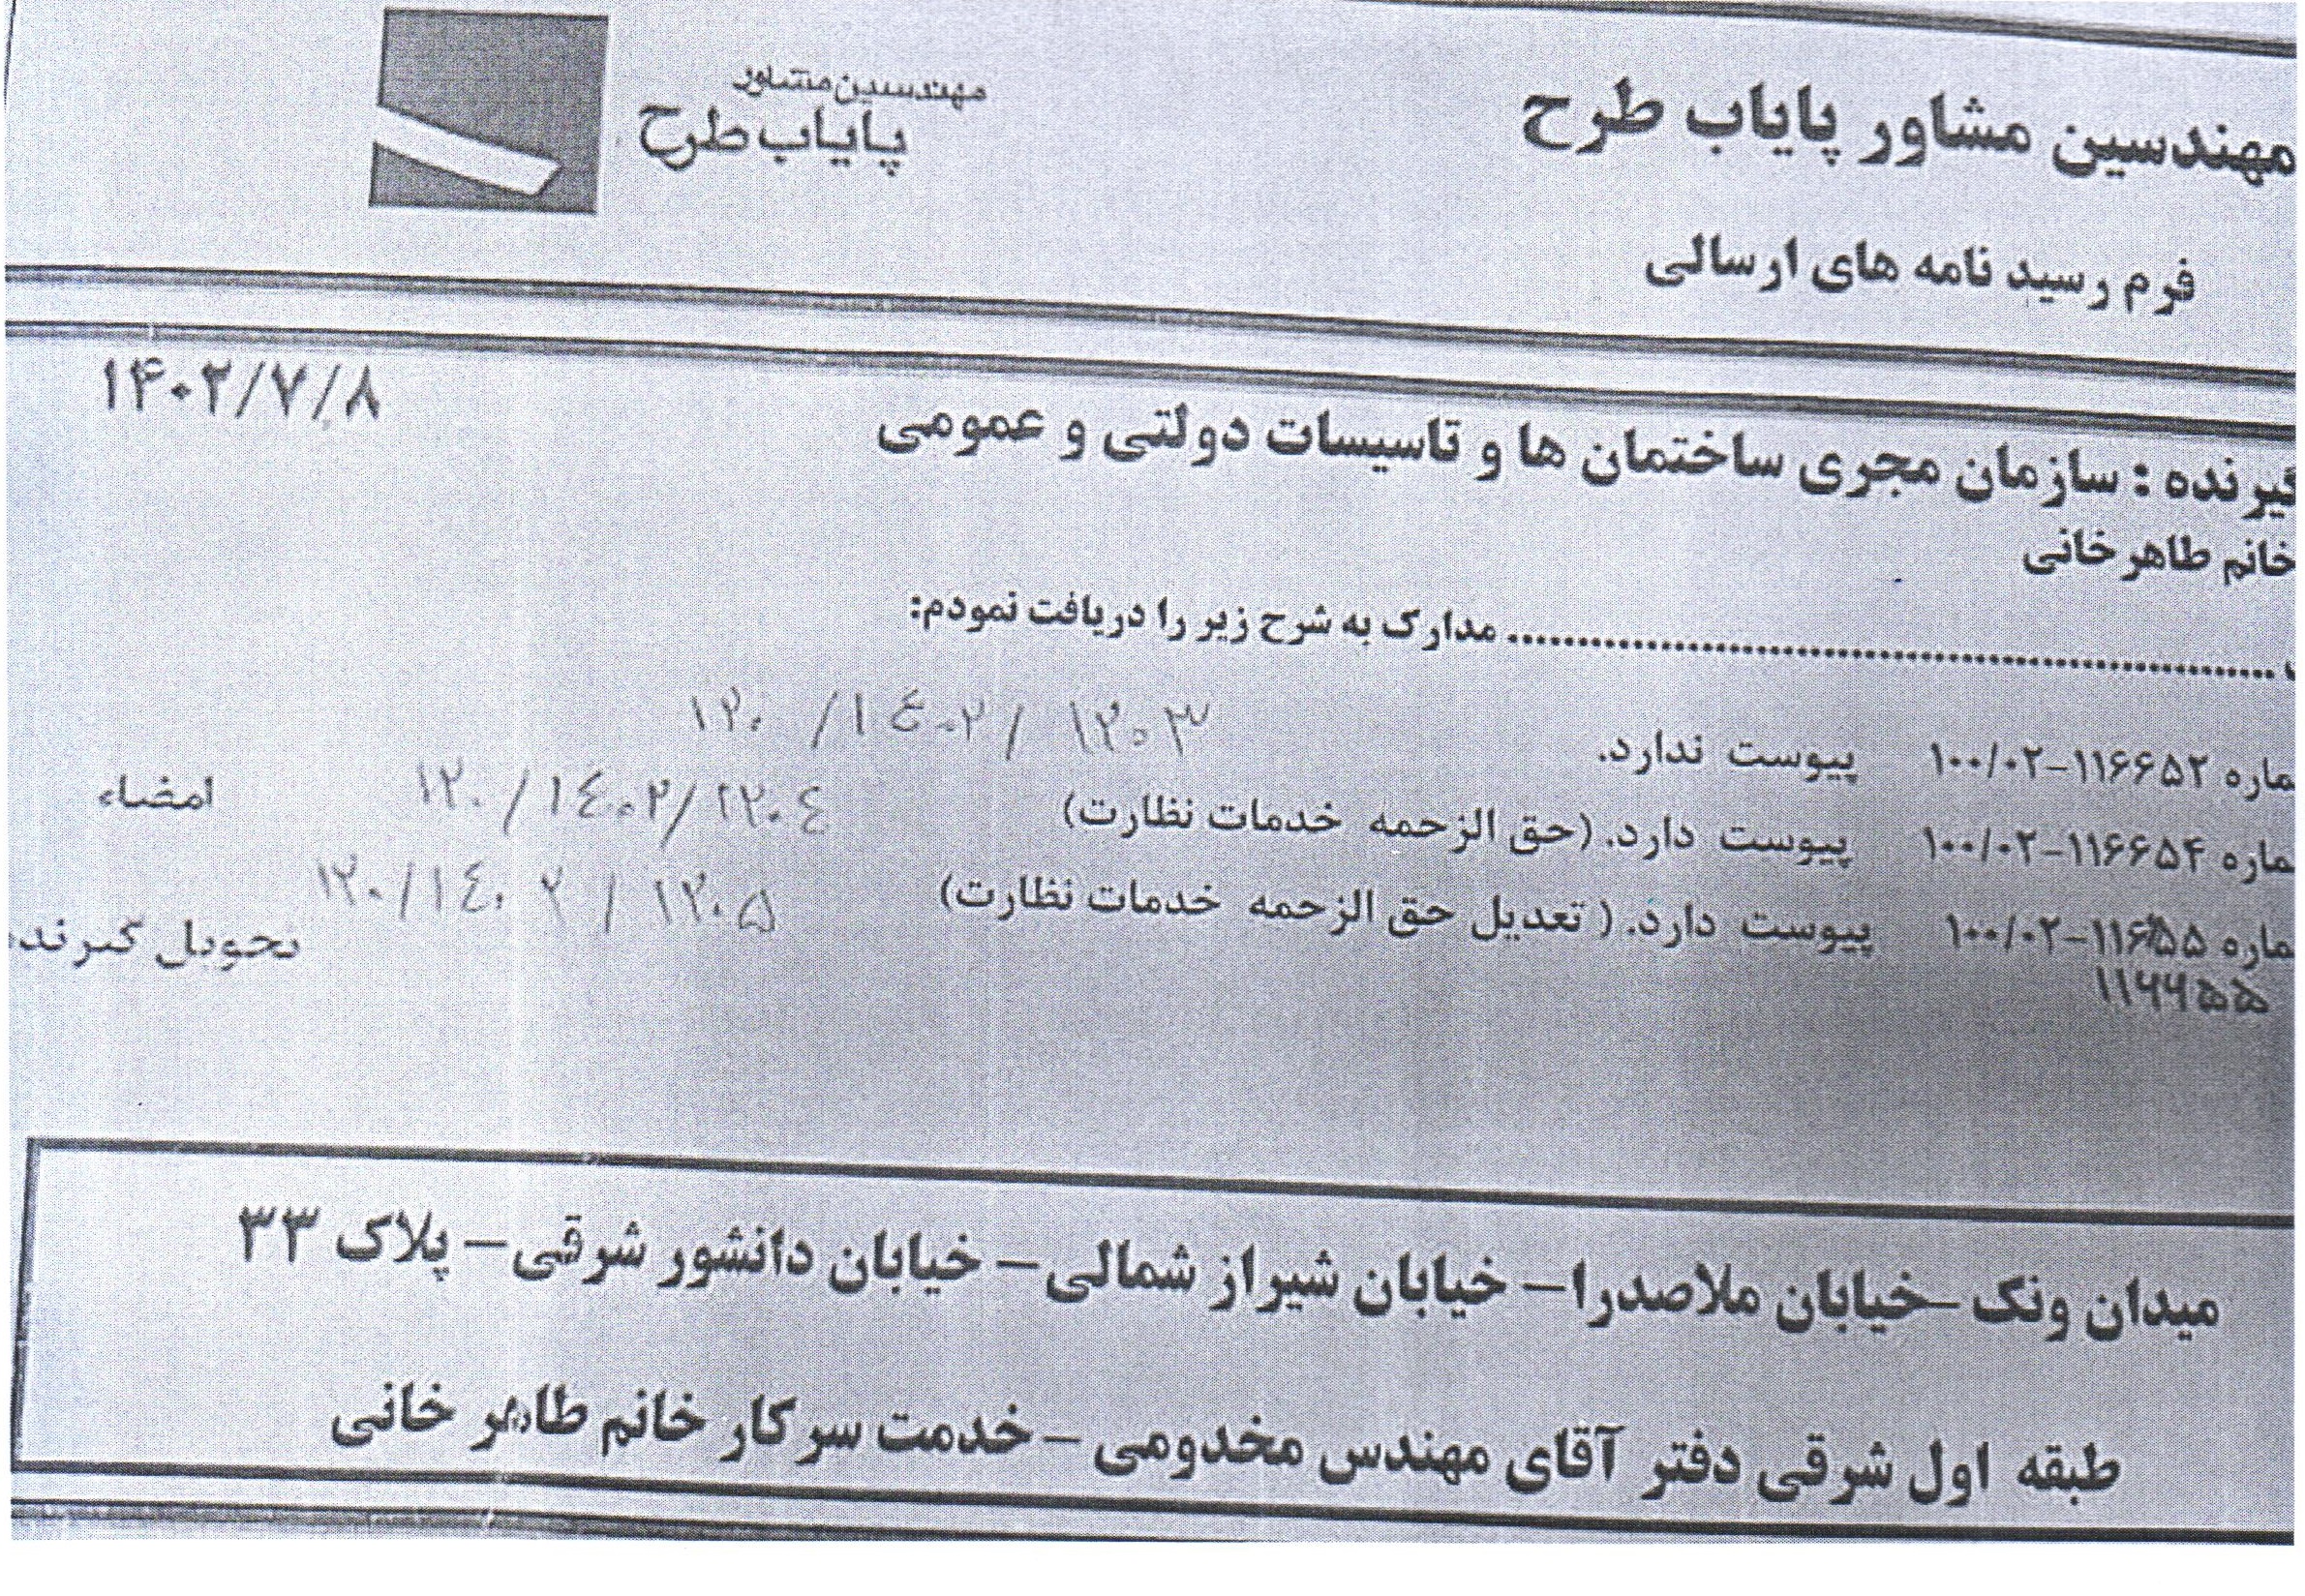 مهندسین مشاور پایاب طرح
مهندسین مشاور
پایاب طرح
فرم رسید نامه های ارسالی
۱۴۰۲/۷/۸
گیرنده : سازمان مجری ساختمان ها و تاسیسات دولتی و عمومی
خانم طاهرخانی
مدارک به شرح زیر را دریافت نمودم:
ماره ۱۱۶۶۵۲-۱۰۰/۰۲ پیوست ندارد. ۱۲۰/۱۴۰۲/۱۲۰۳
ماره ۱۱۶۶۵۴-۱۰۰/۰۲ پیوست دارد. (حق الزحمه خدمات نظارت) ۱۲۰/۱۴۰۲/۱۲۰۴
امضاء
ماره ۱۱۶۵۵-۱۰۰/۰۲ پیوست دارد. ( تعدیل حق الزحمه خدمات نظارت) ۱۲۰/۱۴۰۲/۱۲۰۵
تحویل گیرنده
۱۱۶۶۵۵
میدان ونک -خیابان ملاصدرا- خیابان شیراز شمالی- خیابان دانشور شرقی- پلاک ۳۳
طبقه اول شرقی دفتر آقای مهندس مخدومی -خدمت سرکار خانم طاهر خانی